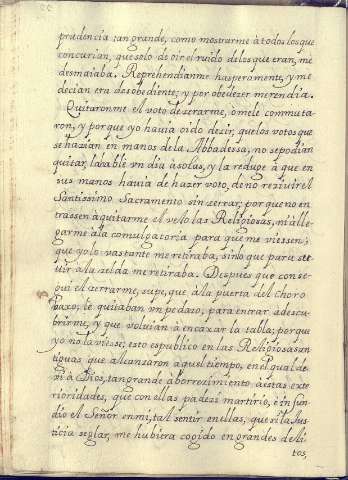 prudencia tan grande, como mostrarme à todos los que
concurian, que solo de oir el ruido de los que eran, me
desmaiaba. Reprehendianme hasperamente, y me
decian era desobediente; y por obedezer me rendia.
Quitaronme el voto de zerarme, ò me le commuta
ron, y porque yo havia oido dezir, que los votos que
se hazian en manos de la Abbadessa, no se podian
quitar, la hablè vn dia à solas, y la reduge à que en
sus manos havia de hazer voto, de no rezivir el
Santissimo Sacramento sin zerrar, porque no en
trassen à quitarme el velo las Religiosas, ni àlle
garme à la comulgatoria para que me viessen;
que yo lo vastante me retiraba, sino que para sa
lir à la zelda me retiraba. Despues que conse
gui el zerrarme, supe, que à la puerta del choro
vaxo, le quitaban vn pedazo, para entrar à descu
brirme, y que volvian à encaxar la tabla; porque
yo no la viesse; esto es publico en las Religiosas an
tiguas que alcanzaron aquel tiempo, en el qual de
vi à Dios, tan grande aborrecimiento à estas exte
rioridades, que con ellas padezi martirio, è infun
diò el Señor en mi, tal sentir en ellas, que si la Jus
ticia seglar, me hubiera cogido en grandes deli
tos,